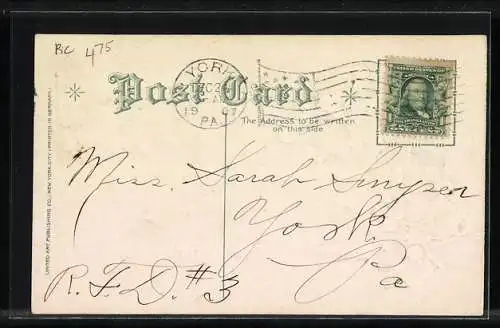 BC 475
YORK
PA.
Post Card
The Address to be written
on this side
UNITED ART PUBLISHING CO., NEW YORK CITY (PRINTED IN GERMANY)
Miss. Sarah Smyser
York
R.F.D. #3 Pa